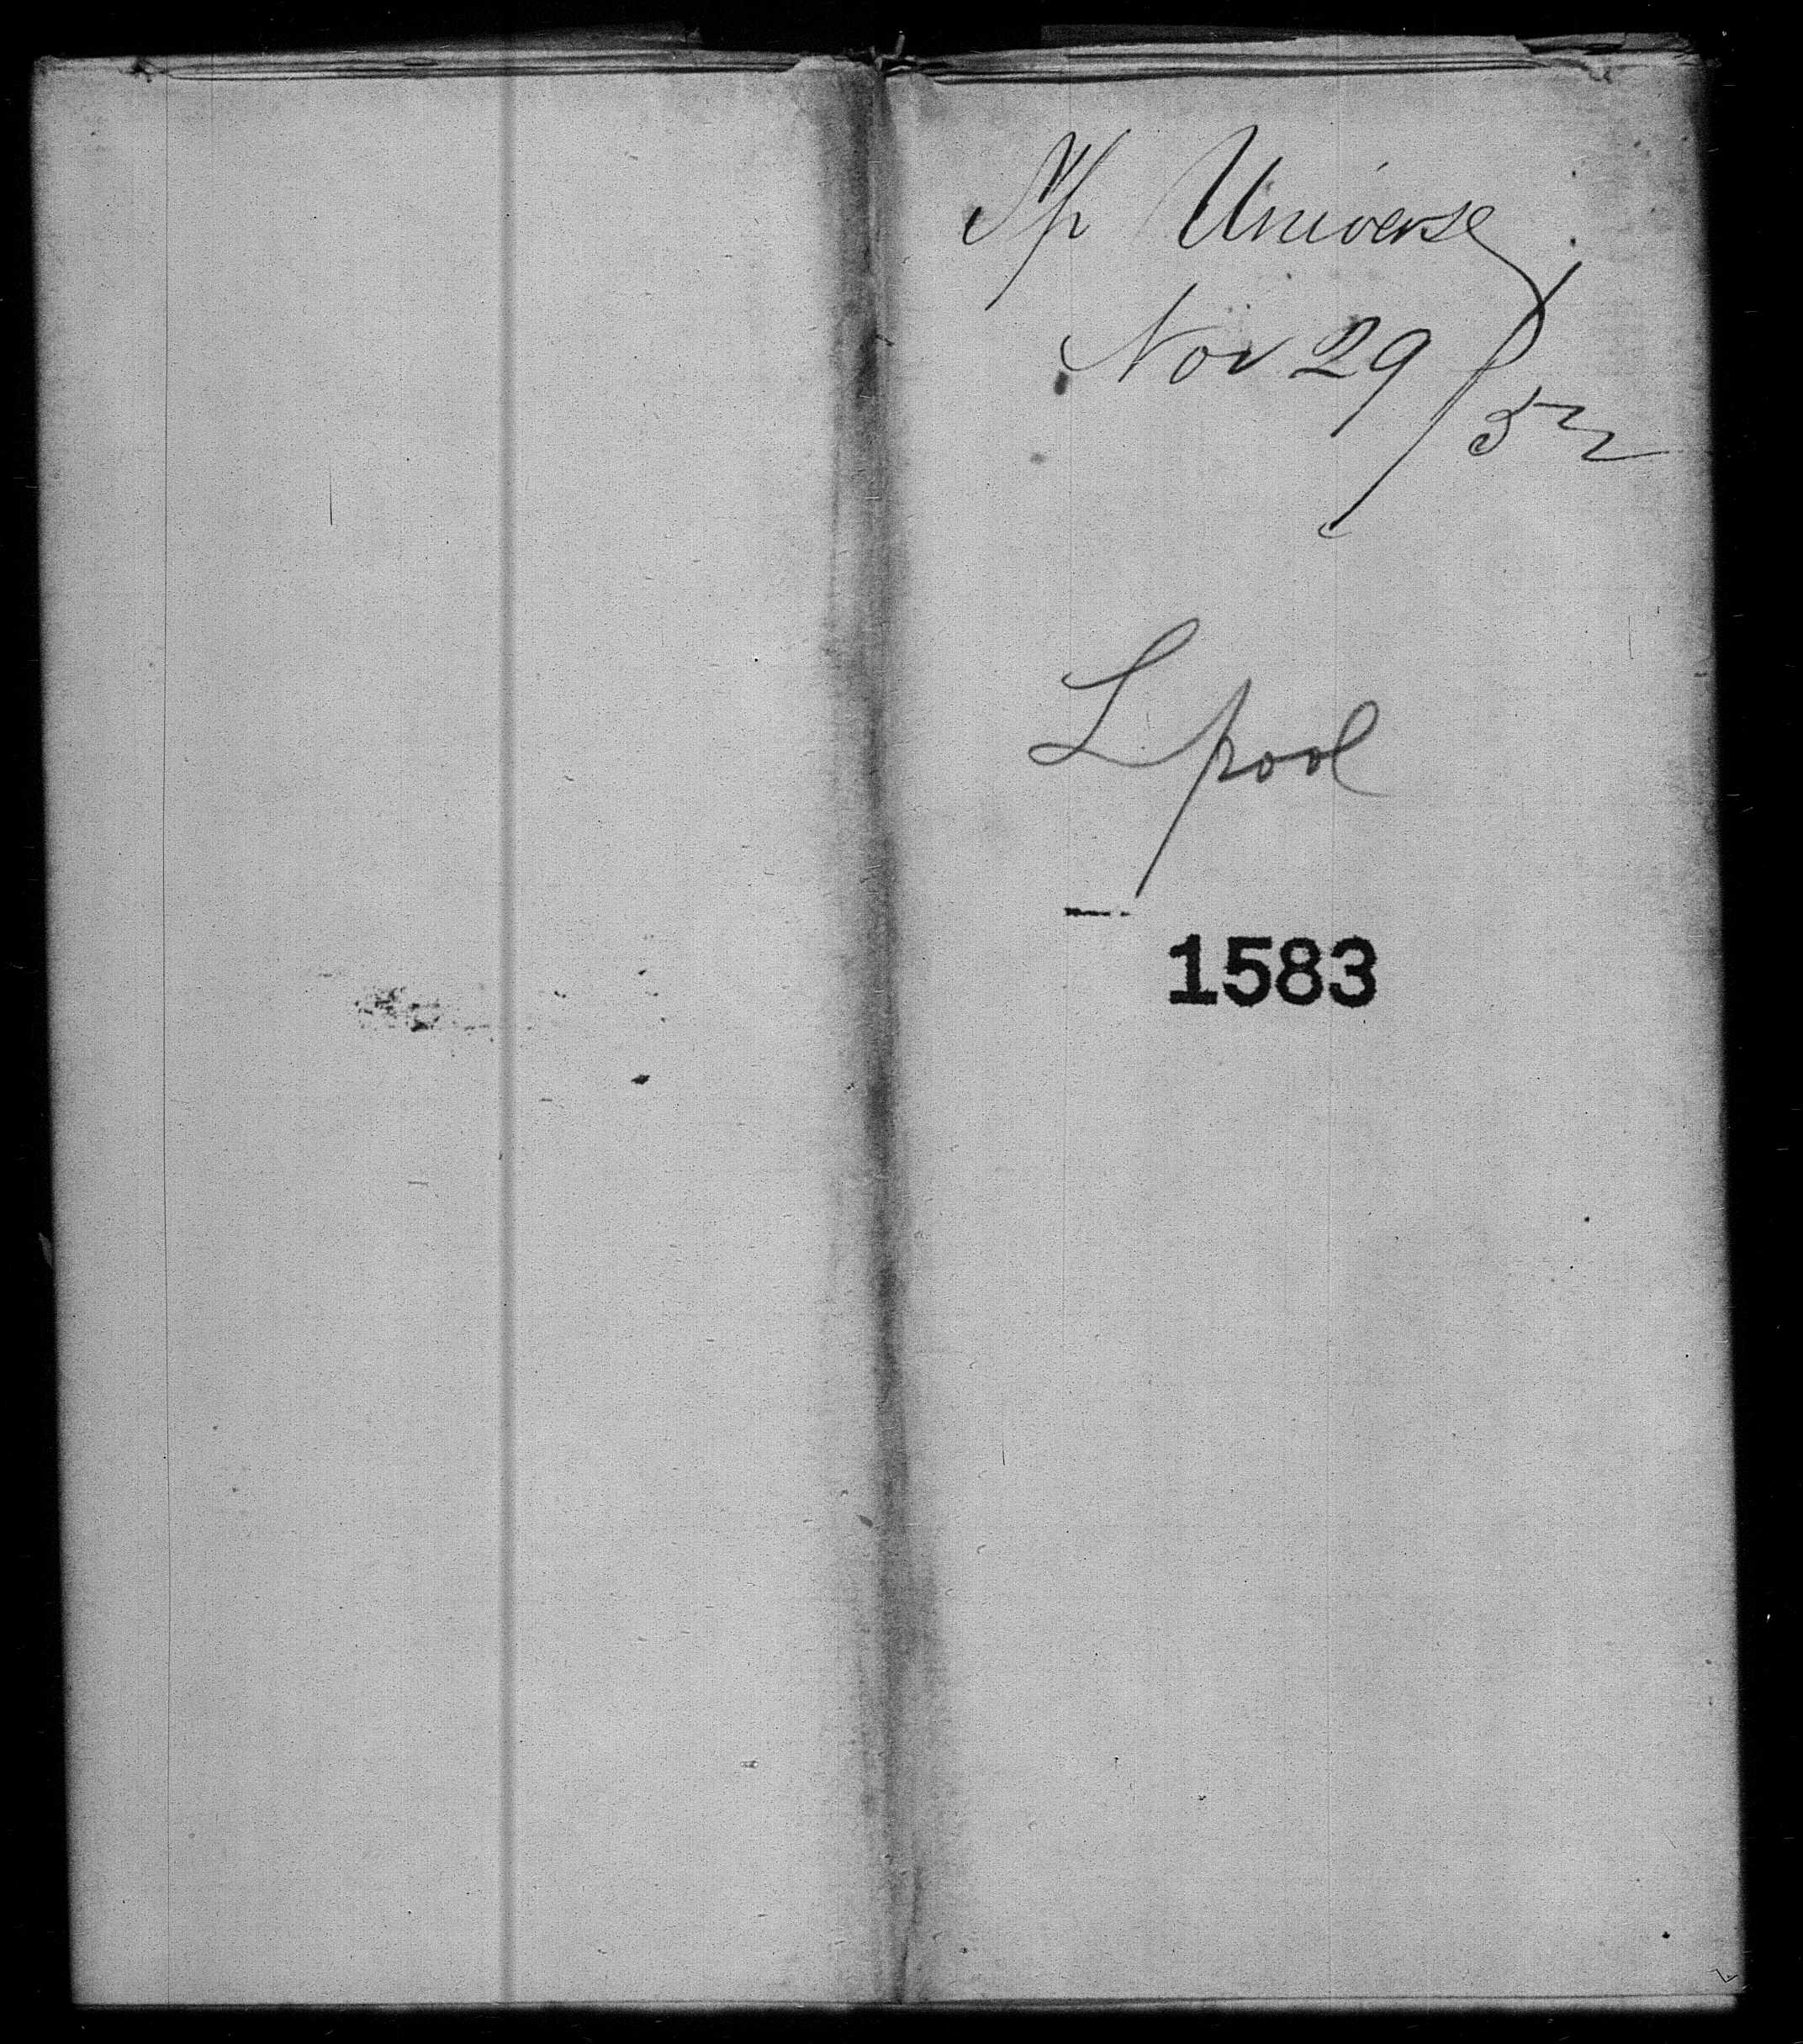 Sp Universe
Nov 29/52
Lpool
1583